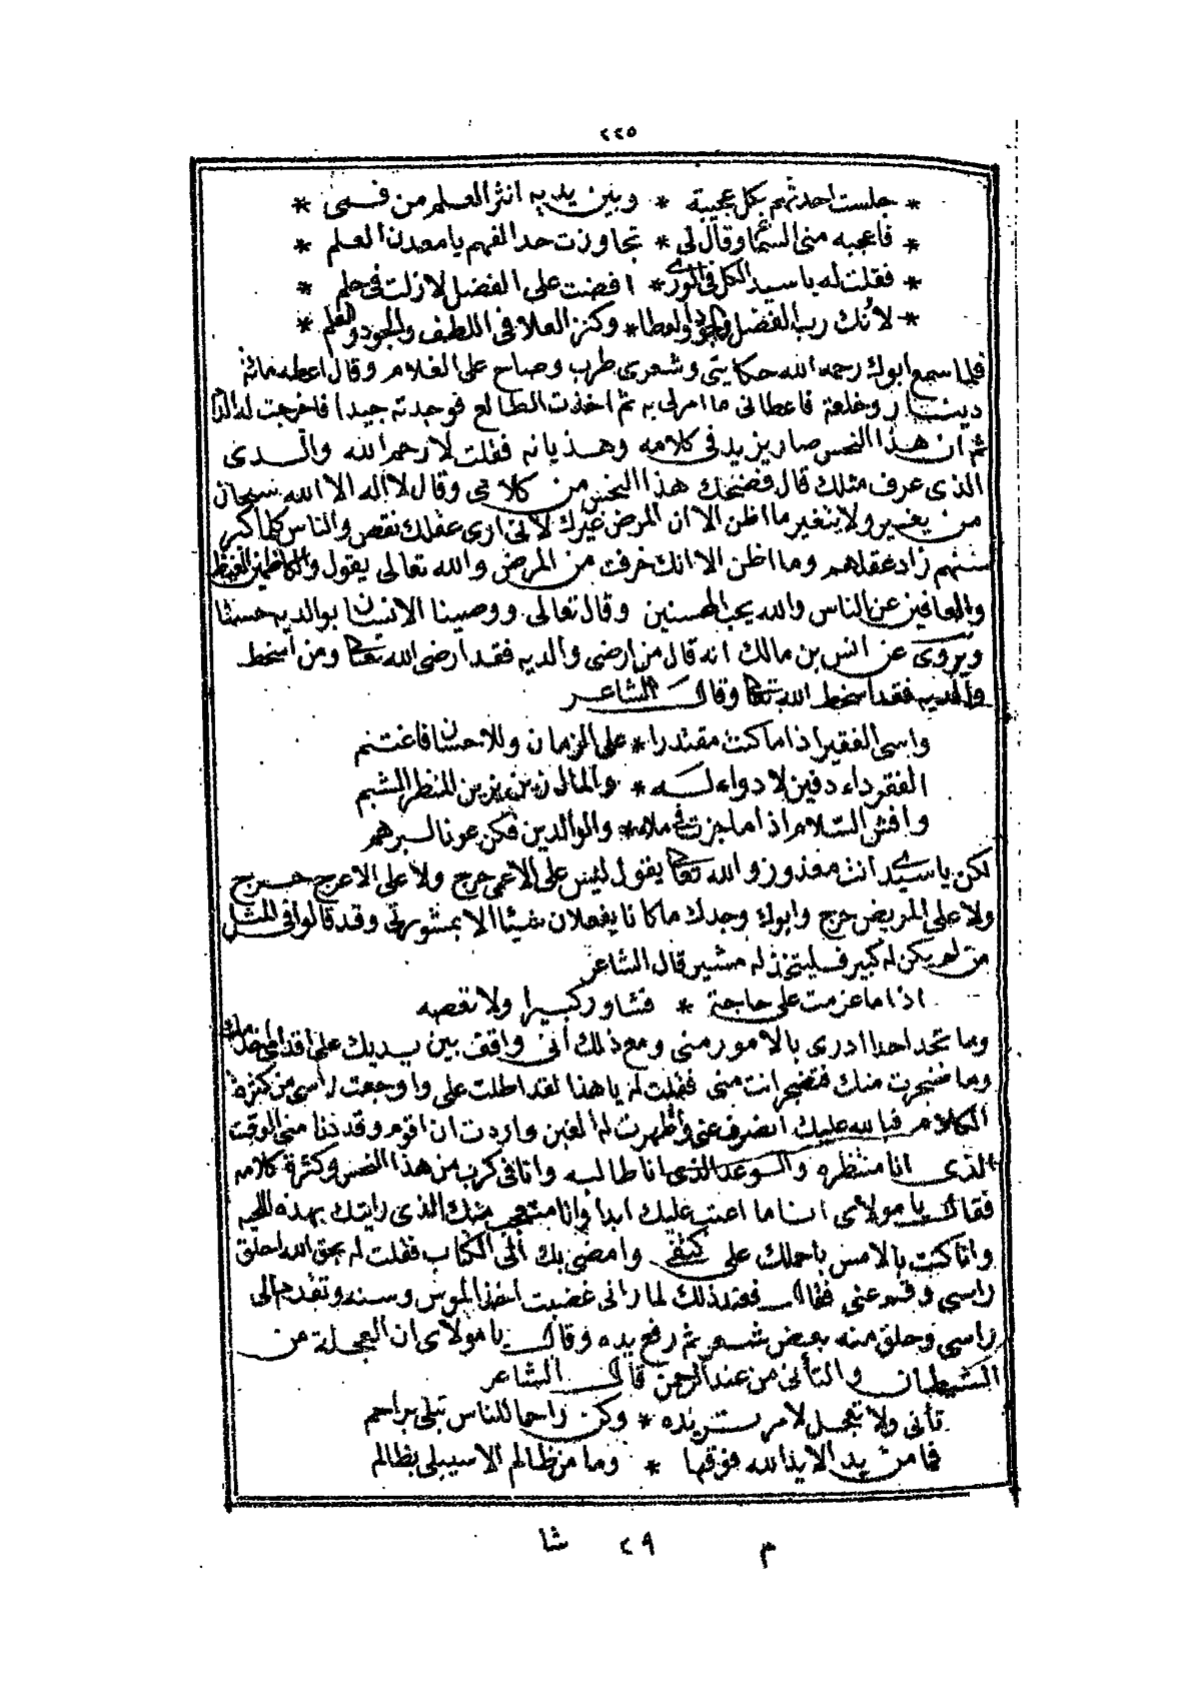 ٢٢٥
* جلست احدثهم بكل عجيبة * وبين يديه انثر العلم من فمى *
* فاعجبه منى السماع وقال لى * تجاوزت حد الفهم يا معدن العلم *
* فقلت له يا سيد الكل فى الورى * افضت على الفضل لا زلت فى حلم *
* لانك رب الفضل والجود والعطا * وكنز العلا فى اللطف والجود والعلم *
فلما سمع ابوك رحمه الله حكايتى وشعرى طرب وصاح على الغلام وقال اعطه مائة
دينار وخلعة فاعطانى ما امر لى به ثم اخذت الطالع فوجدته جيدا فاخرجت له الدم
ثم ان هذا النحس صار يزيد فى كلامه وهذيانه فقلت لا رحم الله والدى
الذى عرف مثلك قال فضحك هذا النحس من كلامى وقال لا اله الا الله سبحان
من يغير ولا يتغير ما اظن الا ان المرض غيرك لانى ارى عقلك نقص والناس كلما كبر
سنهم زاد عقلهم وما اظن الا انك خرفت من المرض والله تعالى يقول والكاظمين الغيظ
والعافين عن الناس والله يحب المحسنين وقال تعالى ووصينا الانسان بوالديه حسنا
ويروى عن انس بن مالك انه قال من ارضى والديه فقد ارضى الله تعالى ومن اسخط
والديه فقد اسخط الله تعالى وقال الشاعر
واسى الفقير اذا ما كنت مقتدرا * على الزمان وللاحسان فاغتنم
الفقر داء دفين لا دواء له * والمال زين يزين المنظر الشبم
وافش السلام اذا ما جزت فى ملاء * والوالدين فكن عونا لبرهم
لكن يا سيدى انت معذور والله تعالى يقول ليس على الاعمى حرج ولا على الاعرج حرج
ولا على المريض حرج وابوك وجدك ما كانا يفعلان شيئا الا بمشورتى وقد قالوا فى المثل
من لم يكن له كبير فليتخذ له مشير قال الشاعر
اذا ما عزمت على حاجة * فشاور كبيرا ولا تعصه
وما تجد احدا ادرى بالامور منى ومع ذلك أنى واقف بين يديك على اقدامى اخدمك
وما ضجرت منك فتضجر انت منى فقلت له يا هذا لقد اطلت على واوجعت راسى من كثرة
الكلام فبالله عليك انصرف عنى وأظهرت له الغبن واردت ان اقوم وقد دنا منى الوقت
الذى انا منتظره والوعد الذى انا طالبه وانا فى كرب من هذا النحس وكثرة كلامه
فقال يا مولاى انا ما اعتب عليك ابدا وانا متعجب منك الذى رايتك بهذه اللحيه
وانا كنت بالامس باحملك على كتفى وامضى بك الى الكتاب فقلت له بحق الله احلق
راسي وقم عنى فقال فعند ذلك لما رانى غضبت اخذ الموس وسنه وتقدم الى
راسي وحلق منه بعض شعر ثم رفع يده وقال يا مولاى ان العجلة من
الشيطان والتأنى من عند الرحمن قال الشاعر
تأنى ولا تعجل لامر تريده * وكن راحما للناس تبلى براحم
فما من يد الا يد الله فوقها * وما من ظالم الا سيبلى بظالم
م ٢٩ شا